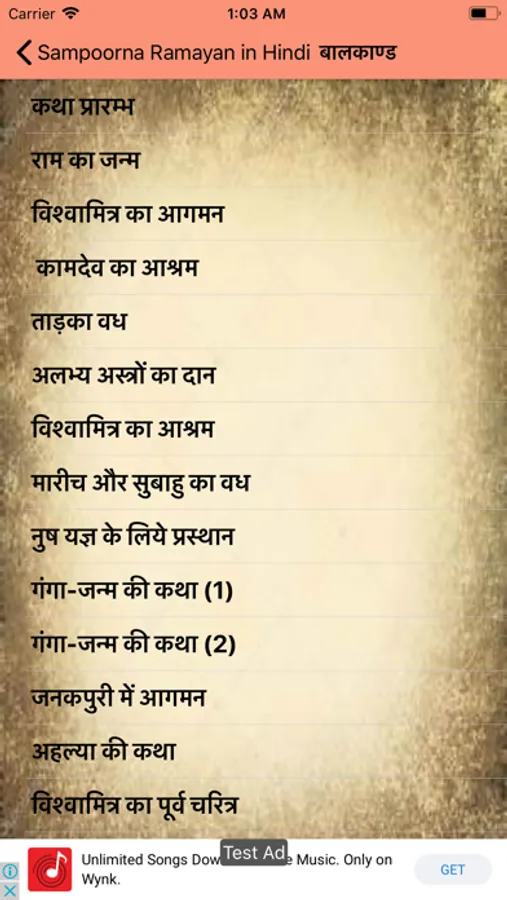 Carrier 1:03 AM
Sampoorna Ramayan in Hindi बालकाण्ड
कथा प्रारम्भ
राम का जन्म
विश्वामित्र का आगमन
कामदेव का आश्रम
ताड़का वध
अलभ्य अस्त्रों का दान
विश्वामित्र का आश्रम
मारीच और सुबाहु का वध
नुष यज्ञ के लिये प्रस्थान
गंगा-जन्म की कथा (1)
गंगा-जन्म की कथा (2)
जनकपुरी में आगमन
अहल्या की कथा
विश्वामित्र का पूर्व चरित्र
Test Ad
Unlimited Songs Dow e Music. Only on
Wynk.
GET